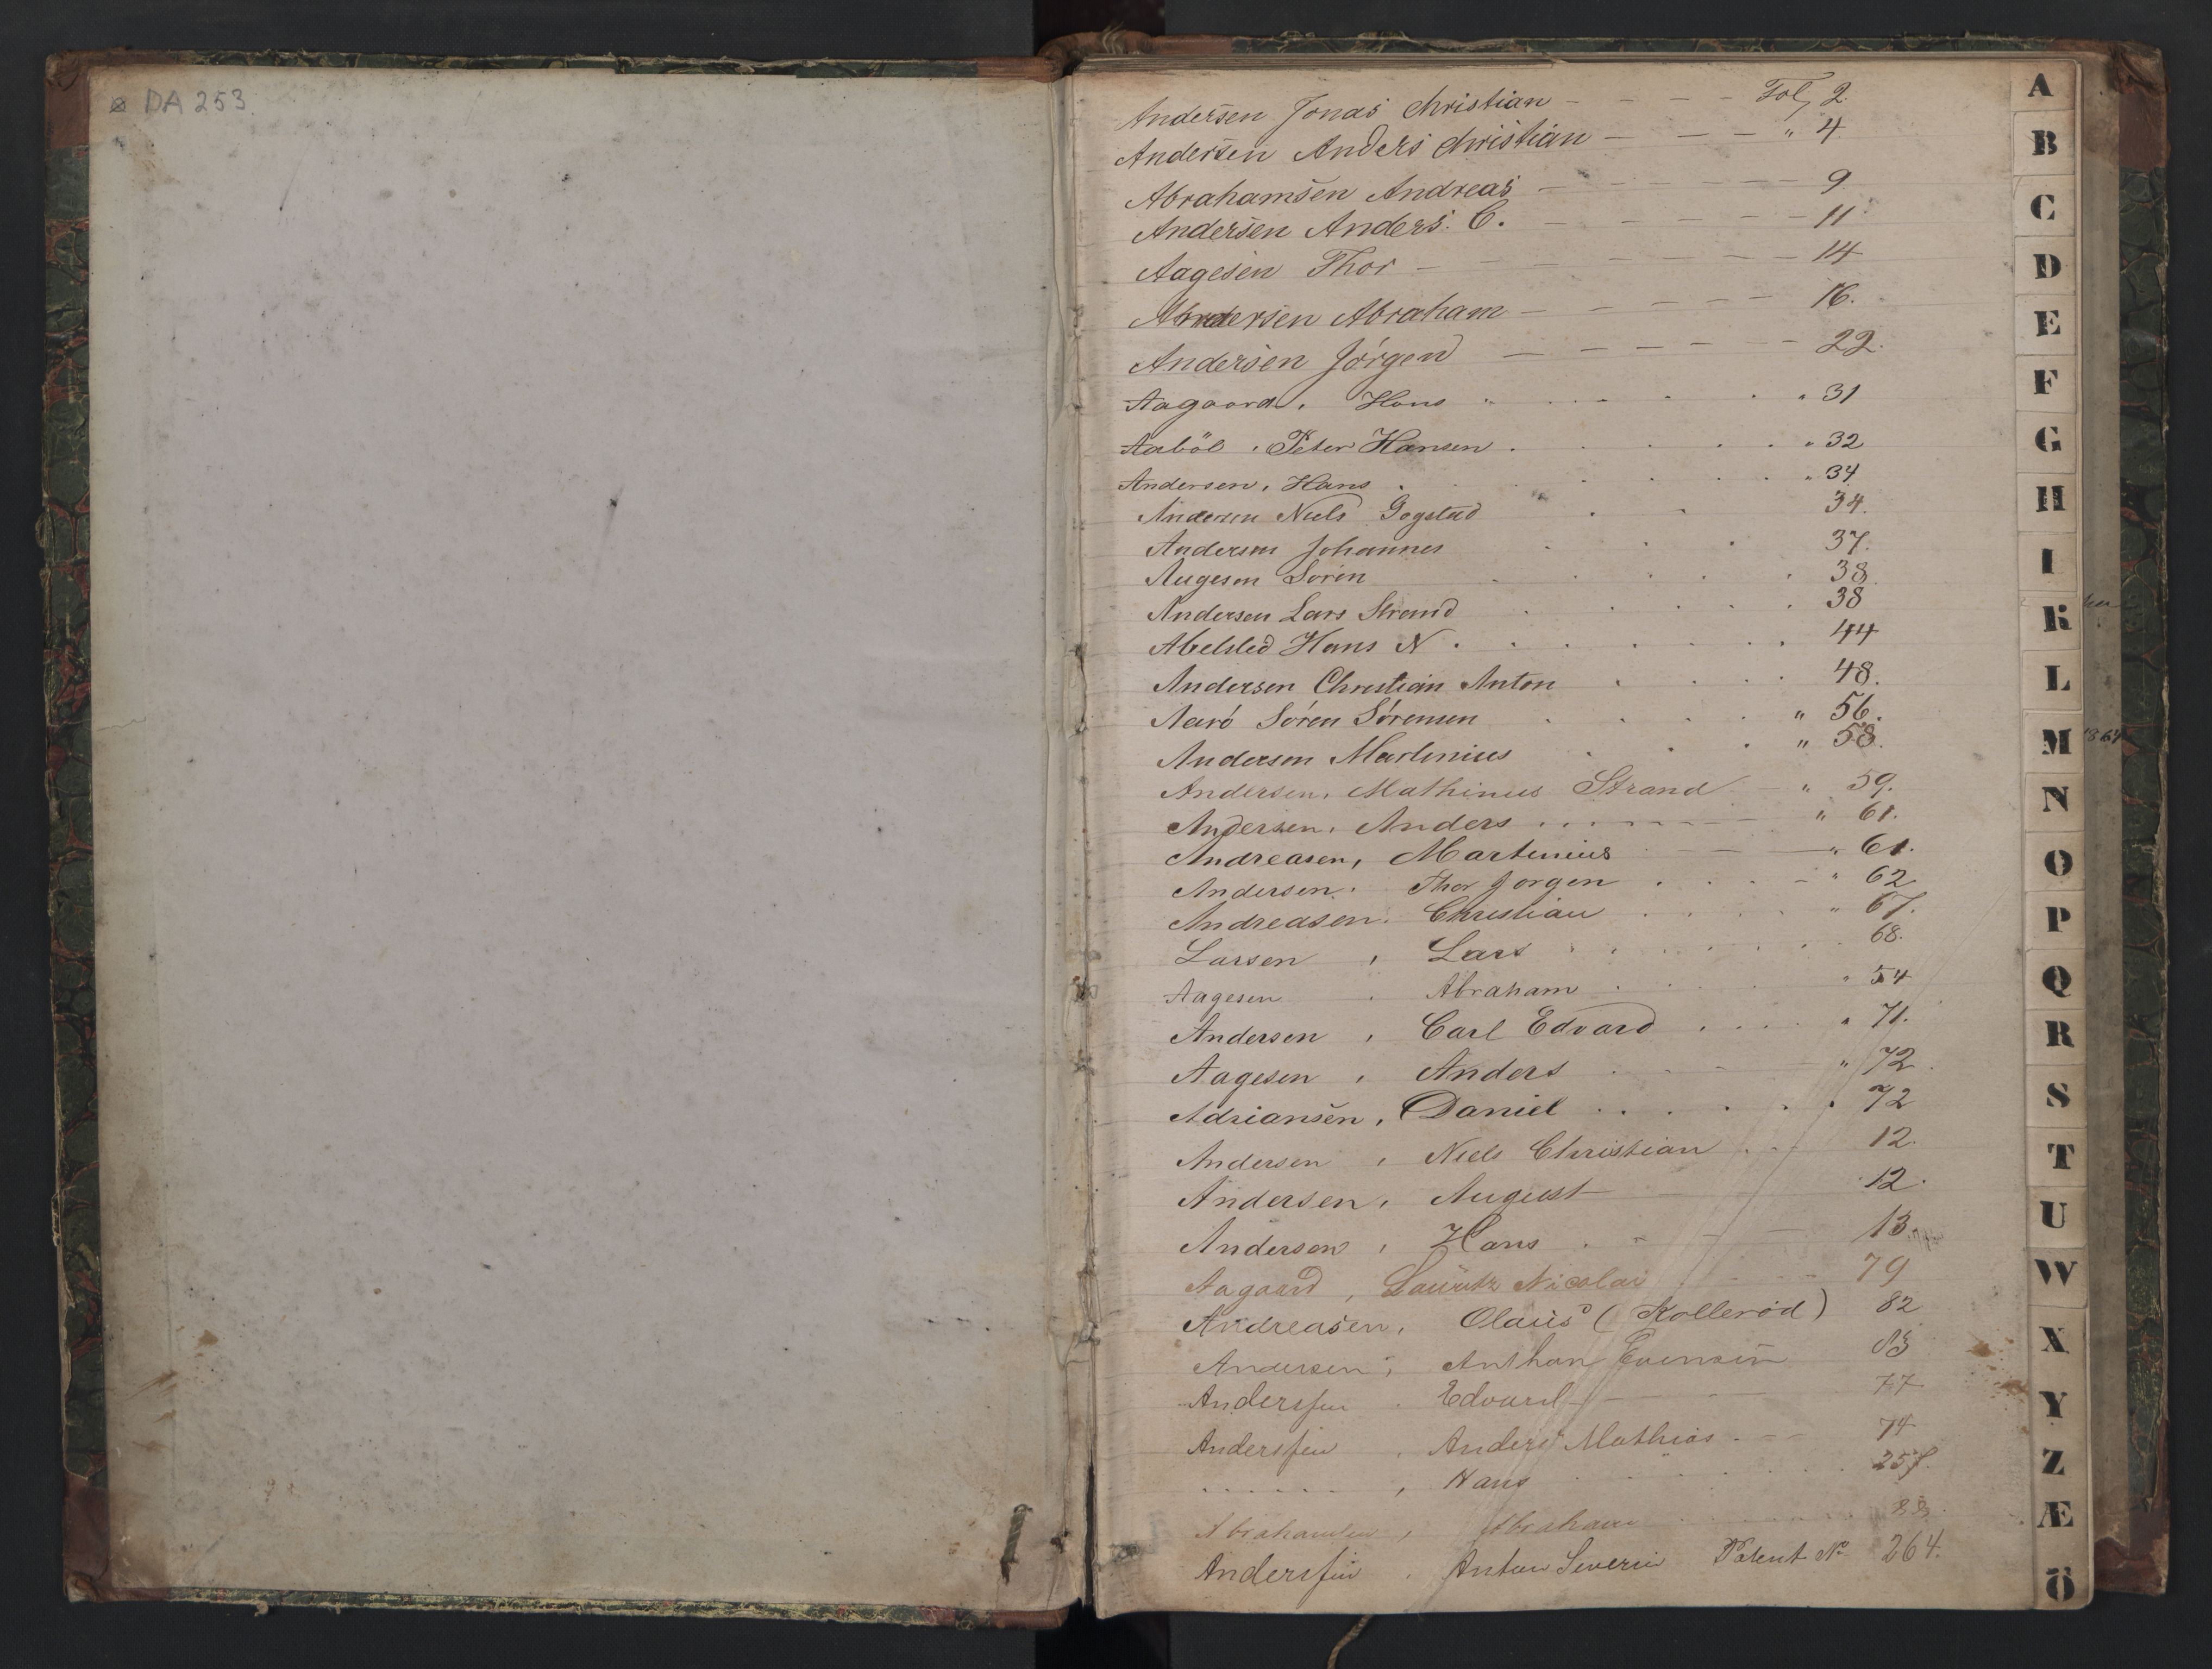 DA 253
Andersen Jonas Christian - - - - Fol, 2.
Andersen Anders Christian - - - " 4
Abrahamsen Andreas - - - - - 9
Andersen Anders C. - - - - - 11
Aagesen Thor - - - - - - 14
Andersen Abraham - - - - - 16.
Andersen Jörgen - - - - - - 22.
Aagaard, Hans " . . . . " 31
Aaböl, Peter Hansen . . . . " 32
Andersen, Hans . . . . . " 34
Andersen Niels Gogstad . . 34.
Andersen Johannes . . . 37.
Augesen Sorén . . . . . 38.
Andersen Lars Strand . . . . . 38
Abelsted Hans N . . . . . . . 44
Andersen Christian Anton . . . . 48.
Aarö Sören Sörensen . . . . " 56.
Andersen Martinius . . . " 58.
Andersen, Mathinus Strand - " 59.
Andersen, Anders . . . - - - " 61.
Andreasen, Martinius - - - " 61.
Andersen, Thor Jorgen . . . - " 62
Andreasen, Christian . . . . " 67.
Larsen, Lars . . . . . . . 68.
Aagesen, Abraham . . . . " 54
Andersen, Carl Edvard . . . . " 71.
Aagesen, Anders . . - - " 72.
Adriansen, Daniel . . . . . . 72
Andersen, Niels Christian . . - 12.
Andersen, August - - - 12.
Andersen, Hans . - - - 13
Aagaard, Lauritz Nicolai - - - 79
Andreasen, Olaus (Kolleröd) 82
Andersen, Anthon Evensen 83
Anderssen, Edvard - - - 77
Anderssen, Anders Mathias . - - 74
. . . . . . , Hans . . . . . . . 257.
Abrahamsen, Abraham . . . . . 88.
Anderssen, Anton Severin Patent No 264.
A
B
C
D
E
F
G
H
I
K
L
M
N
O
P
Q
R
S
T
U
W
X
Y
Z
Æ
Ö
1864